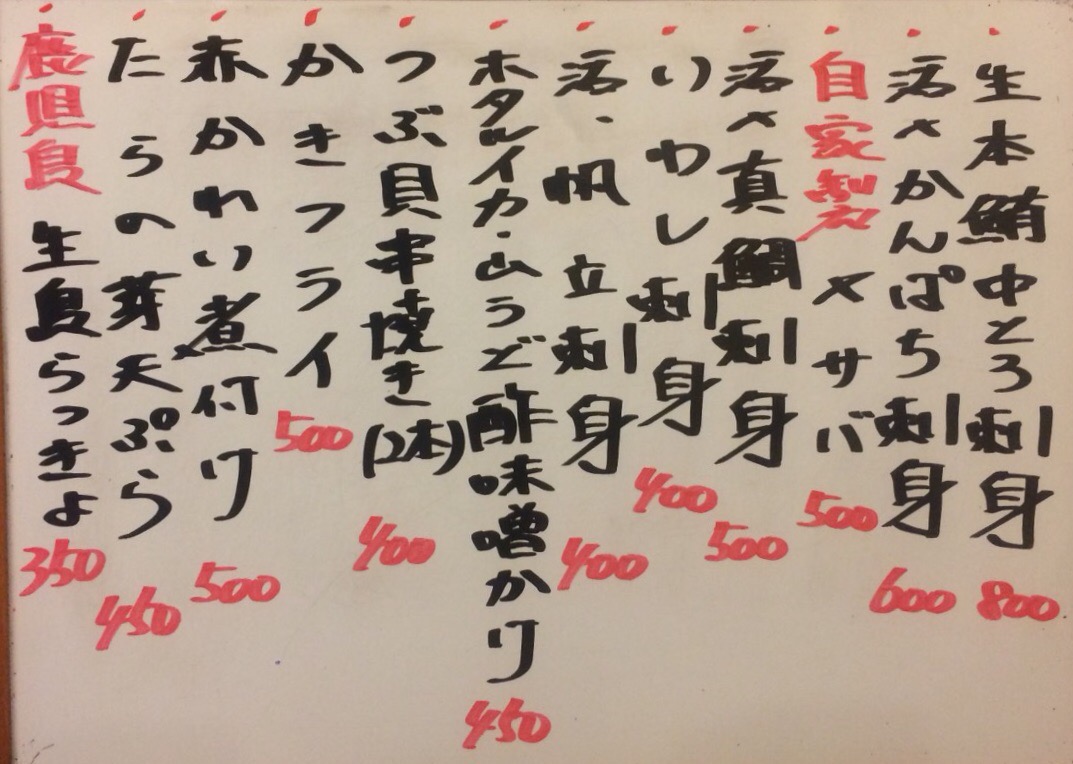 生本鮪中とろ刺身 800
活〆かんぱち刺身 600
自家製 〆サバ 500
活〆真鯛刺身 500
いわし刺身 400
活、帆立刺身 400
ホタルイカ・山うど酢味噌かけ 450
つぶ貝串焼き(2本) 400
かきフライ 500
赤かれい煮付け 500
たらの芽天ぷら 450
鹿児島 生島らっきょ 350